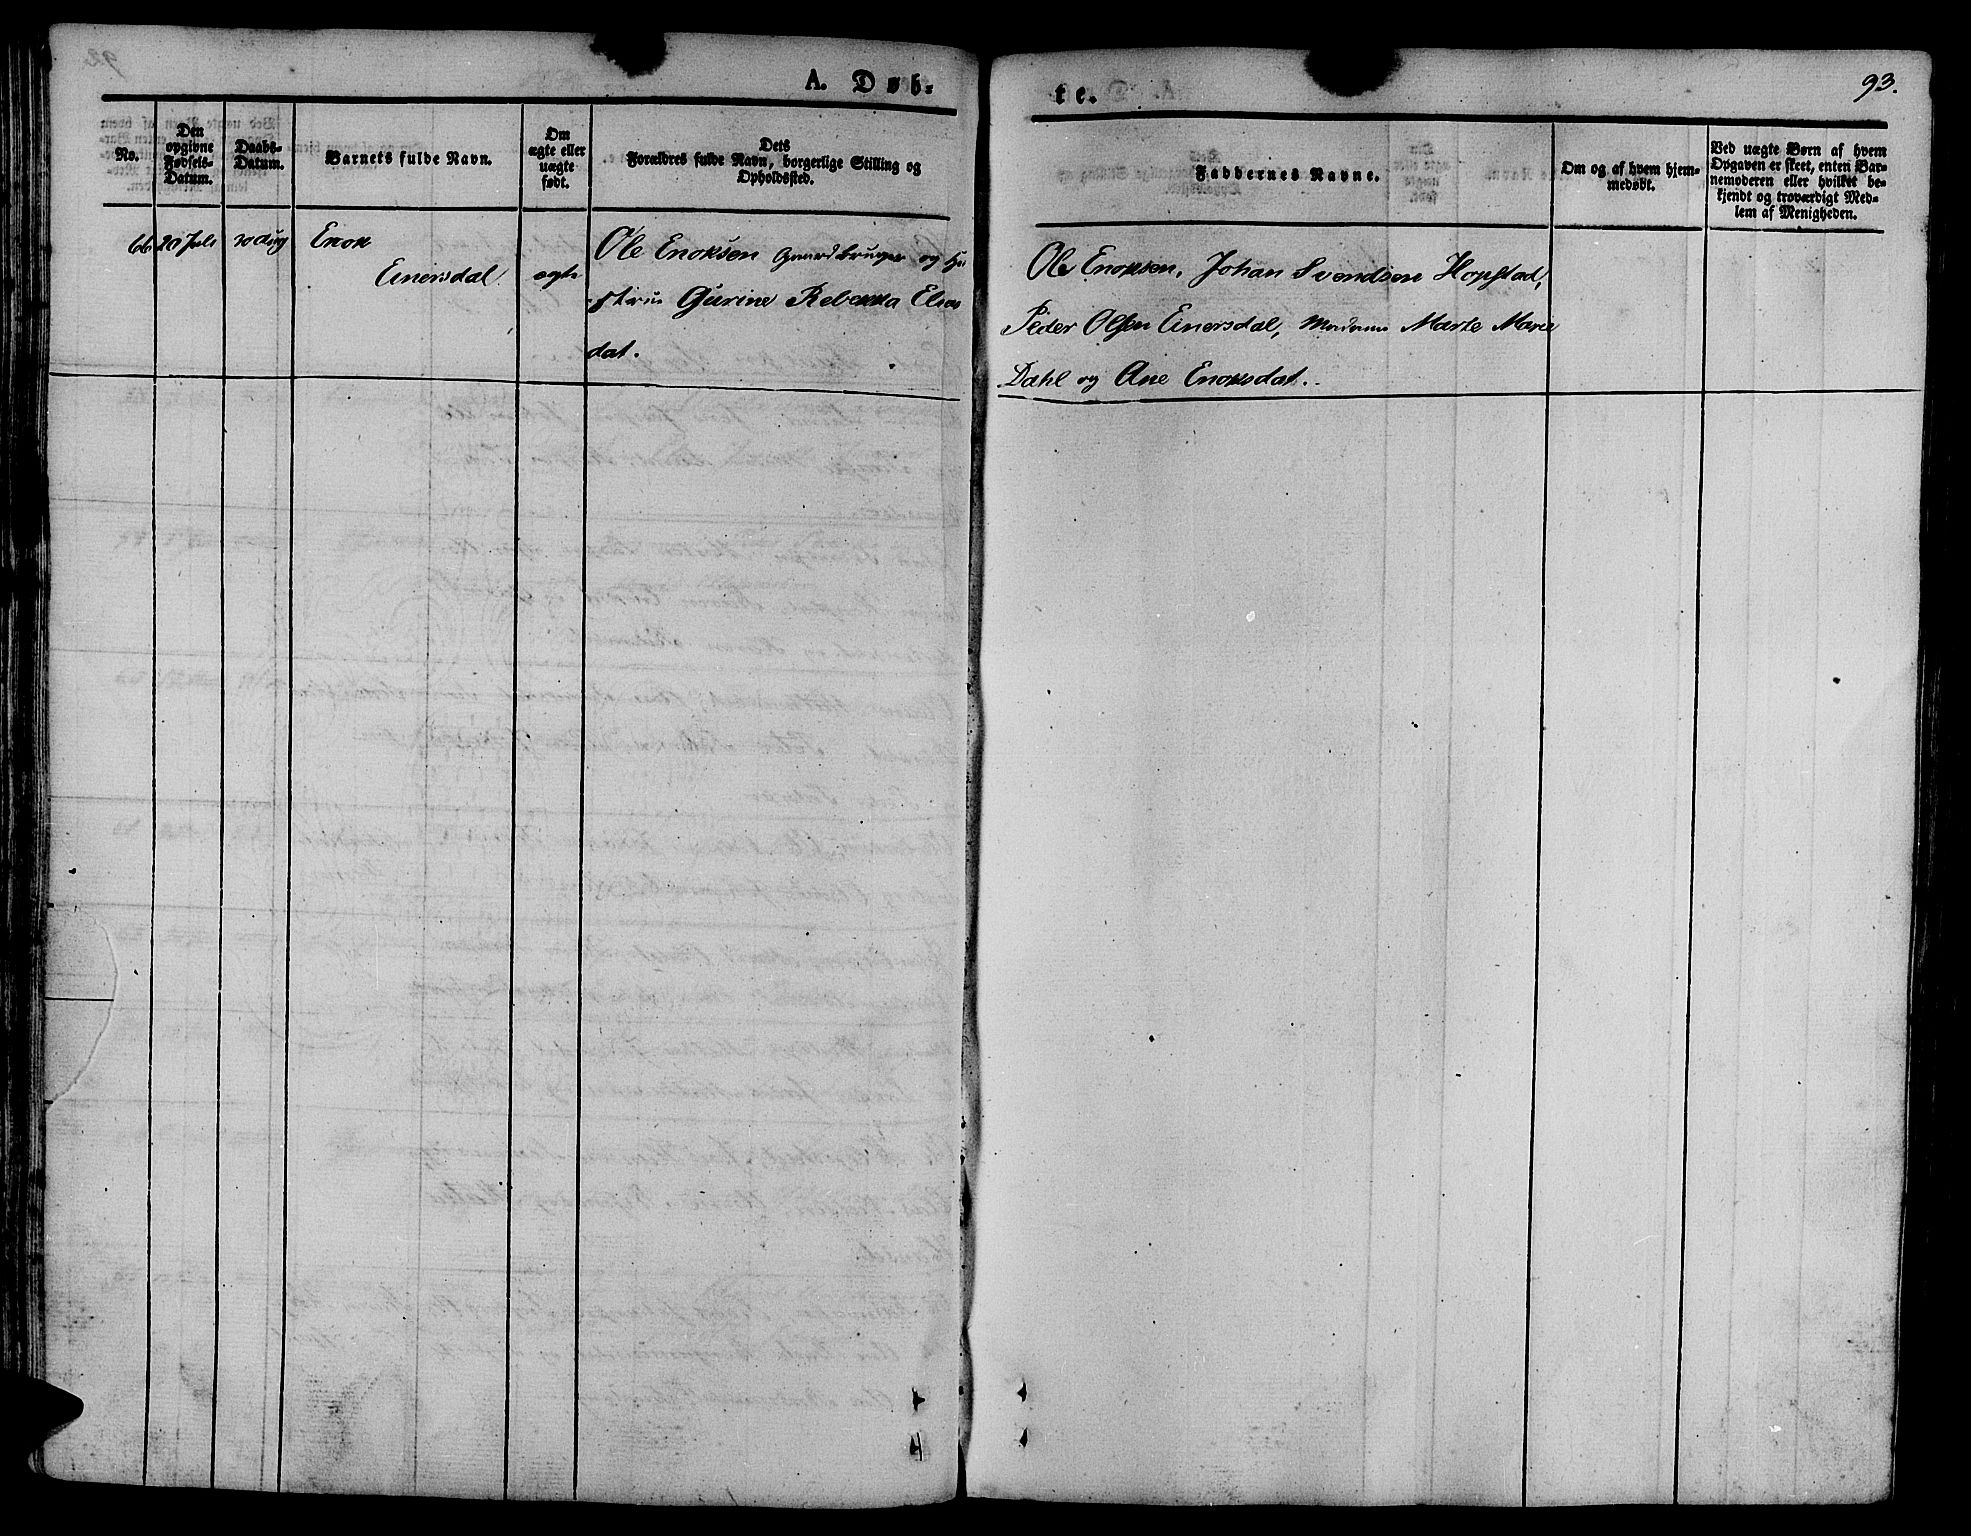 A. Døb-
te.
93.
No.
Den
opgivne
Fødsels-
Datum.
Daabs-
Datum.
Barnets fulde Navn.
Om
ægte eller
uægte
født.
Dets
Forældres fulde Navn, borgerlige Stilling og
Opholdssted.
Faddernes Navne.
Om og af hvem hjem-
medøbt.
Ved uægte Børn af hvem
Opgaven er skeet, enten Bar-
nemoderen eller hvilket be-
kjendt og troværdigt Med-
lem af Menigheden.
66 20 Juli 30 Aug Enok
Einersdal
ægte
Ole Enoksen Gaardbruger og Hu
strue Gurine Rebekka Elias
dat.
Ole Enoksen, Johan Svendsen Hopstad,
Peder Olsen Einersdal, Madame Marte Marie
Dahl og Ane Enoksdat.